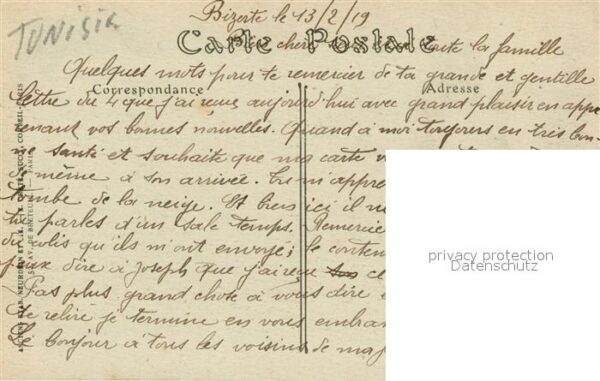 TUNISIA
Bizerte le 13/2/19
Carte Postale
cher toute la famille
Quelques mots pour te remercier de ta grande et gentille
Correspondance Adresse
lettre du 4 que j'ai reçue aujourd'hui avec grand plaisir en appre
nant vos bonnes nouvelles. Quand à moi toujours en très bon
ne santé et souhaite que ma carte v
de même à son arrivée. Tu m'appre
tombe de la neige. Et bien ici il n
tu parles d'un sale temps. Remercie
du colis qu'ils m'ont envoyé; le conten
peux dire à Joseph que j'ai reçu ce
Pas plus grand chose à vous dire
de relire je termine en vous embra
le bonjour à tous les voisins de ma
privacy protection
Datenschutz